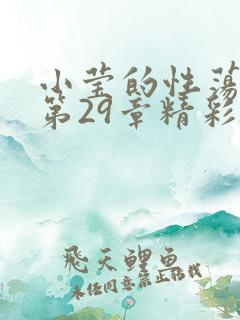 小莹的性荡
第29章精彩
飞天鲤鱼
未经同意禁止转载